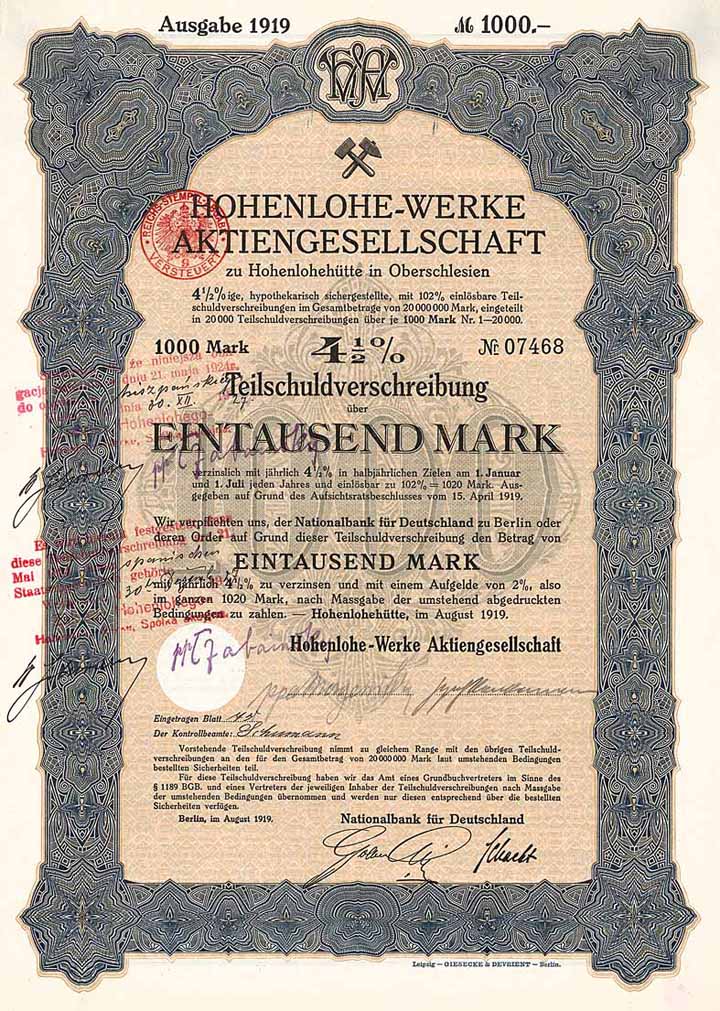 Ausgabe 1919 ℳ 1000.–
HOHENLOHE-WERKE
AKTIENGESELLSCHAFT
zu Hohenlohehütte in Oberschlesien
REICHS-STEMPELABGABE
VERSTEUERT
4½%ige, hypothekarisch sichergestellte, mit 102% einlösbare Teil-
schuldverschreibungen im Gesamtbetrage von 20 000 000 Mark, eingeteilt
in 20 000 Teilschuldverschreibungen über je 1000 Mark Nr. 1—20 000.
1000 Mark 4½% № 07468
że niniejsza
dnia 21. maja 1924r.
Teilschuldverschreibung
über
EINTAUSEND MARK
verzinslich mit jährlich 4½% in halbjährlichen Zielen am 1. Januar
und 1. Juli jeden Jahres und einlösbar zu 102% = 1020 Mark. Aus-
gegeben auf Grund des Aufsichtsratsbeschlusses vom 15. April 1919.
Wir verpflichten uns, der Nationalbank für Deutschland zu Berlin oder
deren Order auf Grund dieser Teilschuldverschreibung den Betrag von
EINTAUSEND MARK
mit jährlich 4½% zu verzinsen und mit einem Aufgelde von 2%, also
im ganzen 1020 Mark, nach Massgabe der umstehend abgedruckten
Bedingungen zu zahlen. — Hohenlohehütte, im August 1919.
Hohenlohe-Werke Aktiengesellschaft
Eingetragen Blatt
Der Kontrollbeamte: Schumann
Vorstehende Teilschuldverschreibung nimmt zu gleichem Range mit den übrigen Teilschuld-
verschreibungen an den für den Gesamtbetrag von 20 000 000 Mark laut umstehenden Bedingungen
bestellten Sicherheiten teil.
Für diese Teilschuldverschreibung haben wir das Amt eines Grundbuchvertreters im Sinne des
§ 1189 BGB. und eines Vertreters der jeweiligen Inhaber der Teilschuldverschreibungen nach Massgabe
der umstehenden Bedingungen übernommen und werden nur diesen entsprechend über die bestellten
Sicherheiten verfügen.
Berlin, im August 1919. Nationalbank für Deutschland
Schacht
Leipzig — GIESECKE & DEVRIENT — Berlin.